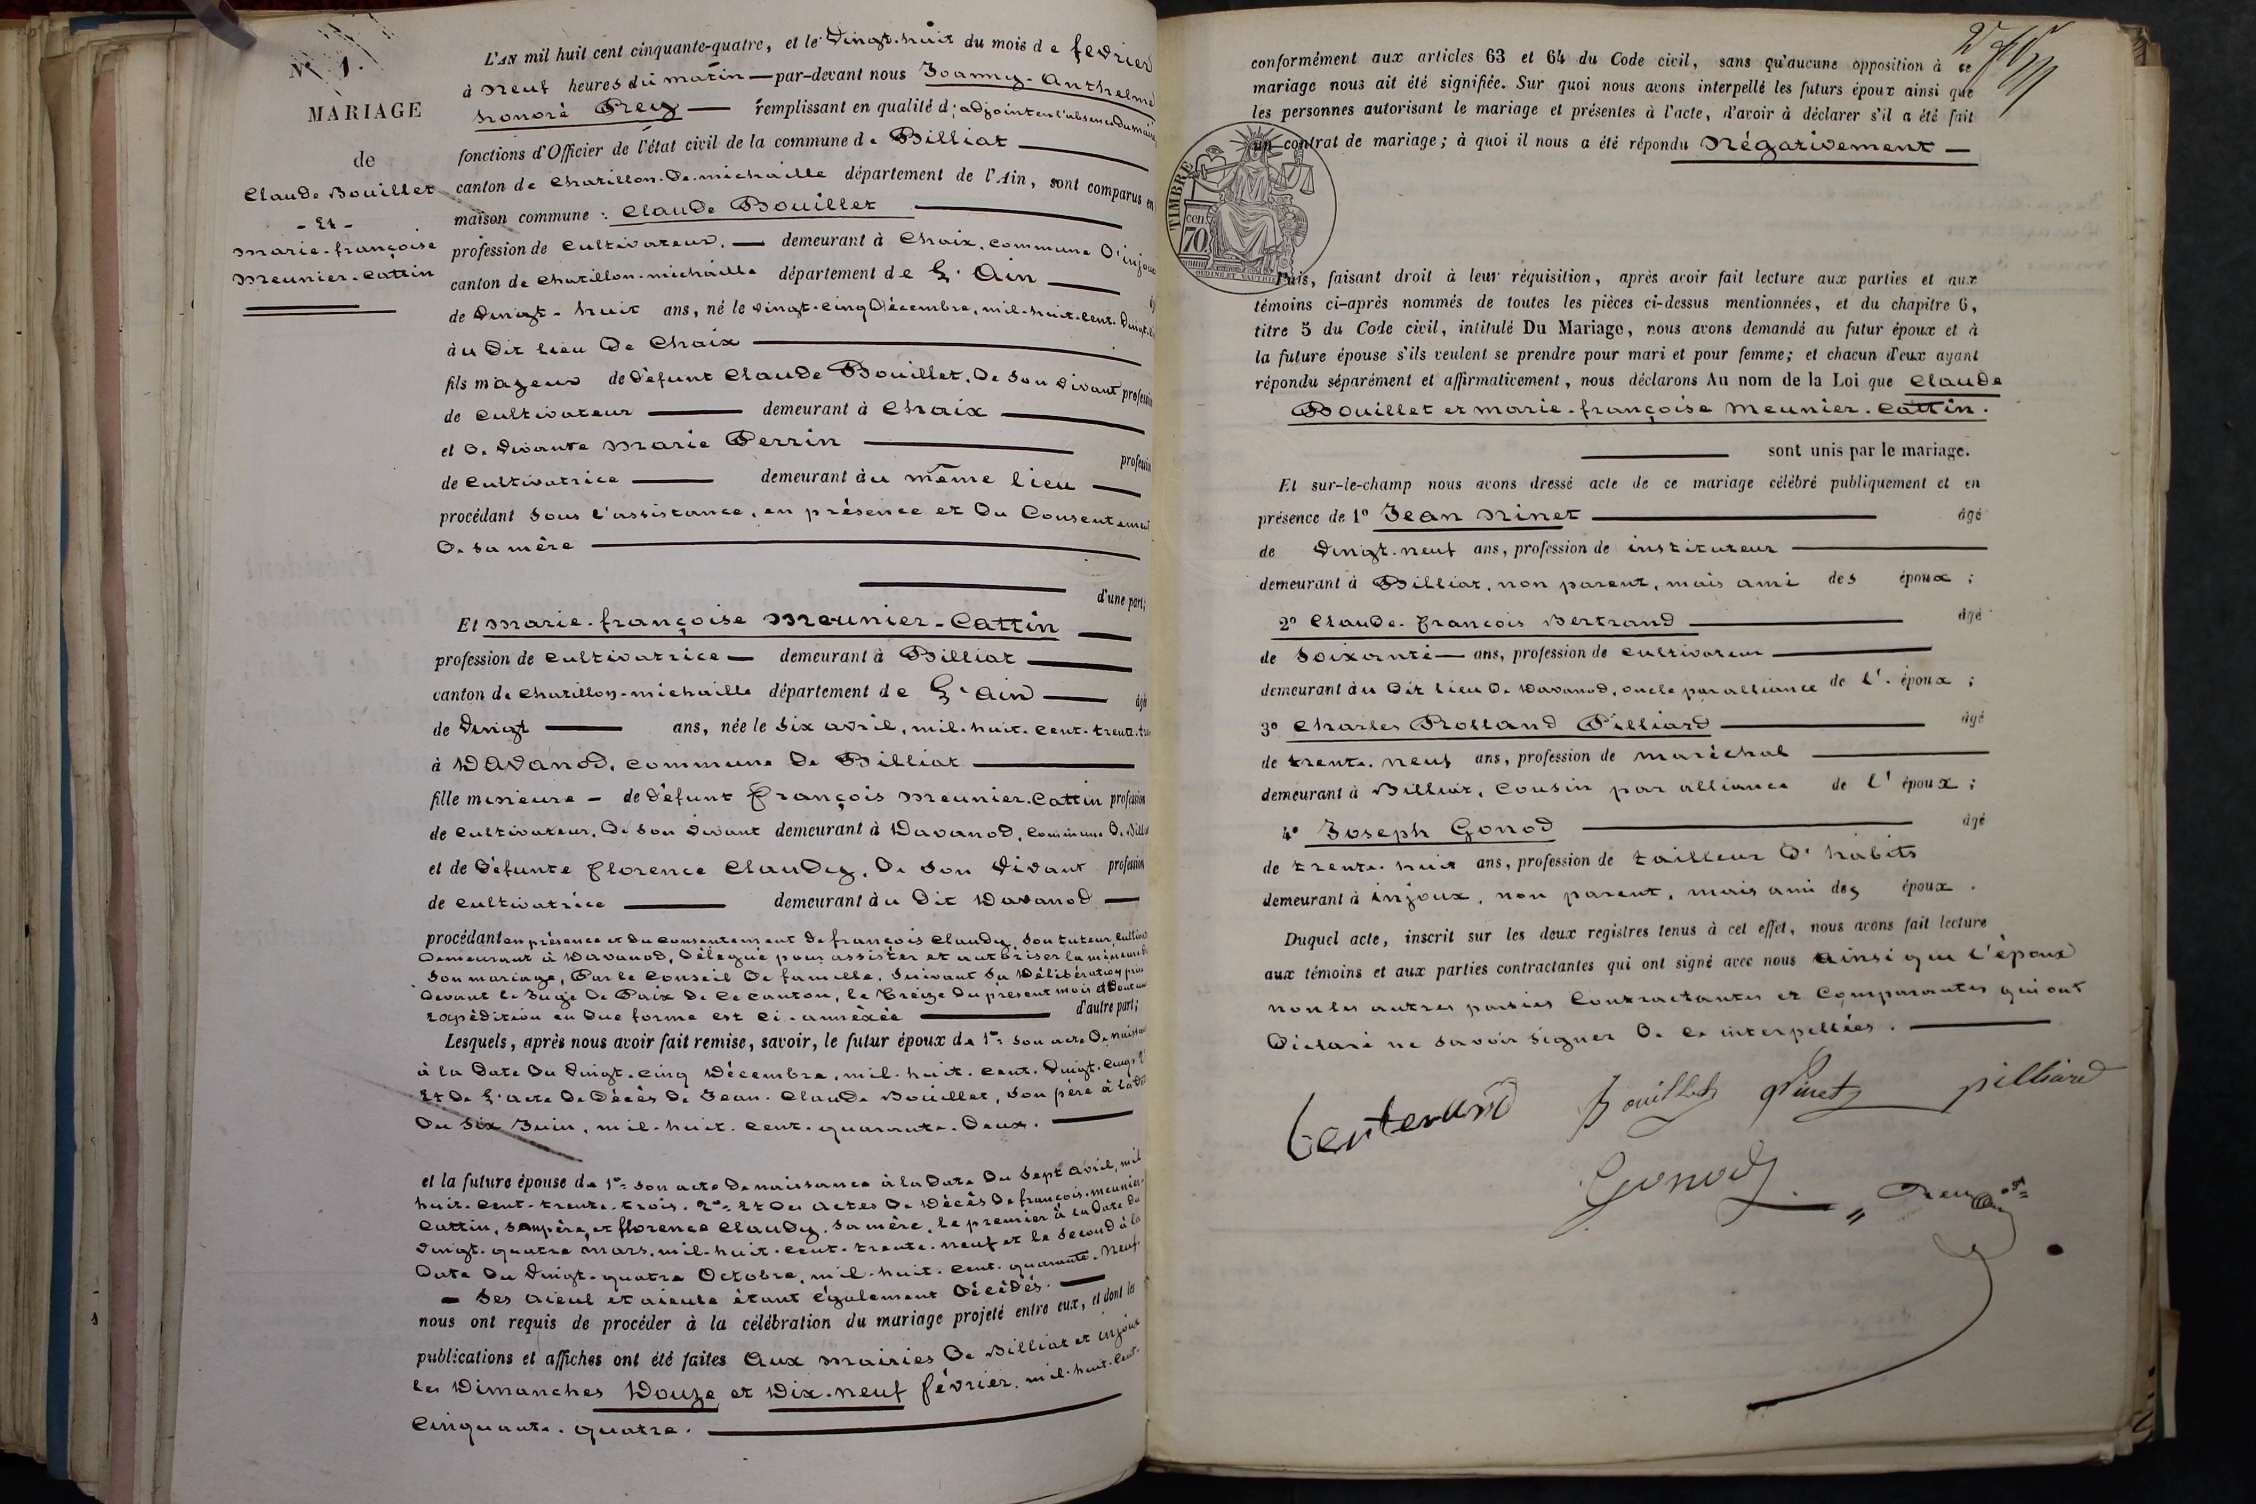 Nº 1.
MARIAGE
de
Claude Bouillet
- Et -
marie-françoise
meunier-Cattin
L'AN mil huit cent cinquante-quatre, et le Vingt-huit du mois de février
à neuf heures du matin — par-devant nous Joanny-Anthelme
honoré Prey — remplissant en qualité d'adjoint en l'absence du maire
fonctions d'Officier de l'état civil de la commune de Billiat
canton de Chatillon-De-michaille département de l'Ain, sont comparus en
maison commune : Claude Bouillet
profession de Cultivateur. — demeurant à Chaix, commune D'injoux
canton de Chatillon-michaille département de L'Ain
de Vingt-huit ans, né le vingt-cinq Décembre, mil-huit-cent-Vingt-
àu Dit lieu De Chaix
fils majeur de défunt Claude Bouillet, De son vivant profession
de Cultivateur demeurant à Chaix
et D. vivante marie Perrin profession
de Cultivatrice demeurant àu même lieu
procédant sous l'assistance, en présence et Du Consentement
De sa mère
d'une part;
Et marie-françoise meunier-Cattin
profession de Cultivatrice — demeurant à Billiat
canton de Chatillon-michaille département de L'Ain âgé
de Vingt ans, née le six avril, mil-huit-cent-trente-
à Davanod, commune De Billiat
fille mineure — de défunt François meunier-Cattin profession
de Cultivateur, De son vivant demeurant à Davanod, Commune D. Billiat
et de Défunte florence Claudy, De son Vivant profession
de Cultivatrice demeurant àu Dit Davanod
procédant en présence et du consentement de françois Claudy, son tuteur, Cultivateur
Demeurant à Davanod, Délégué pour assister et autoriser la mineure
son mariage, Par le Conseil De famille, suivant sa Délibération prise
Devant le Juge De Paix De Ce canton, le treize du présent mois et Dont une
expédition en Due forme est ci-annexée d'autre part;
Lesquels, après nous avoir fait remise, savoir, le futur époux de 1º = son acte De naissance
à la Date Du Vingt-cinq Décembre, mil-huit-cent-Vingt-cinq
Et De L'acte De Décès De Jean-Claude Bouillet, son père à la Date
Du six Juin, mil-huit-cent-quarante-Deux.
et la future épouse de 1º = son acte De naissance à la Date Du sept avril, mil
huit-cent-trente-trois. 2º = Et Des actes De Décès De françois-meunier-
Cattin, son père, et florence Claudy, sa mère, le premier à la Date Du
vingt-quatre mars, mil-huit-cent-trente-neuf et le second à la
Date Du Vingt-quatre Octobre, mil-huit-cent-quarante-Neuf.
— Ses aïeul et aïeule étant également Décédés.
nous ont requis de procéder à la célébration du mariage projeté entre eux, et dont les
publications et affiches ont été faites Aux mairies De Billiat et injoux
les Dimanches Douze et Dix-neuf février, mil-huit-Cent-
Cinquante-quatre.
conformément aux articles 63 et 64 du Code civil, sans qu'aucune opposition à ce
mariage nous ait été signifiée. Sur quoi nous avons interpellé les futurs époux ainsi que
les personnes autorisant le mariage et présentes à l'acte, d'avoir à déclarer s'il a été fait
un contrat de mariage ; à quoi il nous a été répondu Négativement —
TIMBRE
cen
70
Puis, faisant droit à leur réquisition, après avoir fait lecture aux parties et aux
témoins ci-après nommés de toutes les pièces ci-dessus mentionnées, et du chapitre 6,
titre 5 du Code civil, intitulé Du Mariage, nous avons demandé au futur époux et à
la future épouse s'ils veulent se prendre pour mari et pour femme; et chacun d'eux ayant
répondu séparément et affirmativement, nous déclarons Au nom de la Loi que Claude
Bouillet et marie-françoise meunier-Cattin.
sont unis par le mariage.
Et sur-le-champ nous avons dressé acte de ce mariage célébré publiquement et en
présence de 1º Jean Ninet âgé
de Vingt-neuf ans, profession de instituteur
demeurant à Billiat, non parent, mais ami des époux ;
2º Claude-François Bertrand âgé
de Soixante — ans, profession de Cultivateur
demeurant àu Dit lieu De Davanod, oncle par alliance de l'époux ;
3º Charles Rolland Pilliard âgé
de trente-neuf ans, profession de maréchal
demeurant à Billiat, Cousin par alliance de l'époux ;
4º Joseph Gonod âgé
de trente-huit ans, profession de tailleur D'habits
demeurant à injoux, non parent, mais ami des époux .
Duquel acte, inscrit sur les deux registres tenus à cet effet, nous avons fait lecture
aux témoins et aux parties contractantes qui ont signé avec nous ainsi que l'époux
non les autres parties Contractantes et Comparantes qui ont
Déclaré ne savoir signer De ce interpellées.
Bouillet Ninet pilliard
Gonod